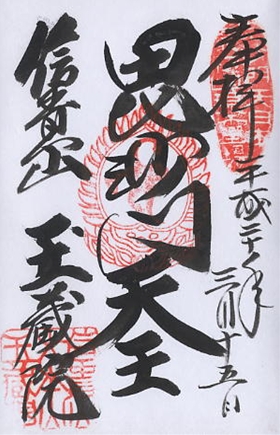 奉拝
平成二十八年
三月十五日
毘沙門天王
信貴山
玉蔵院